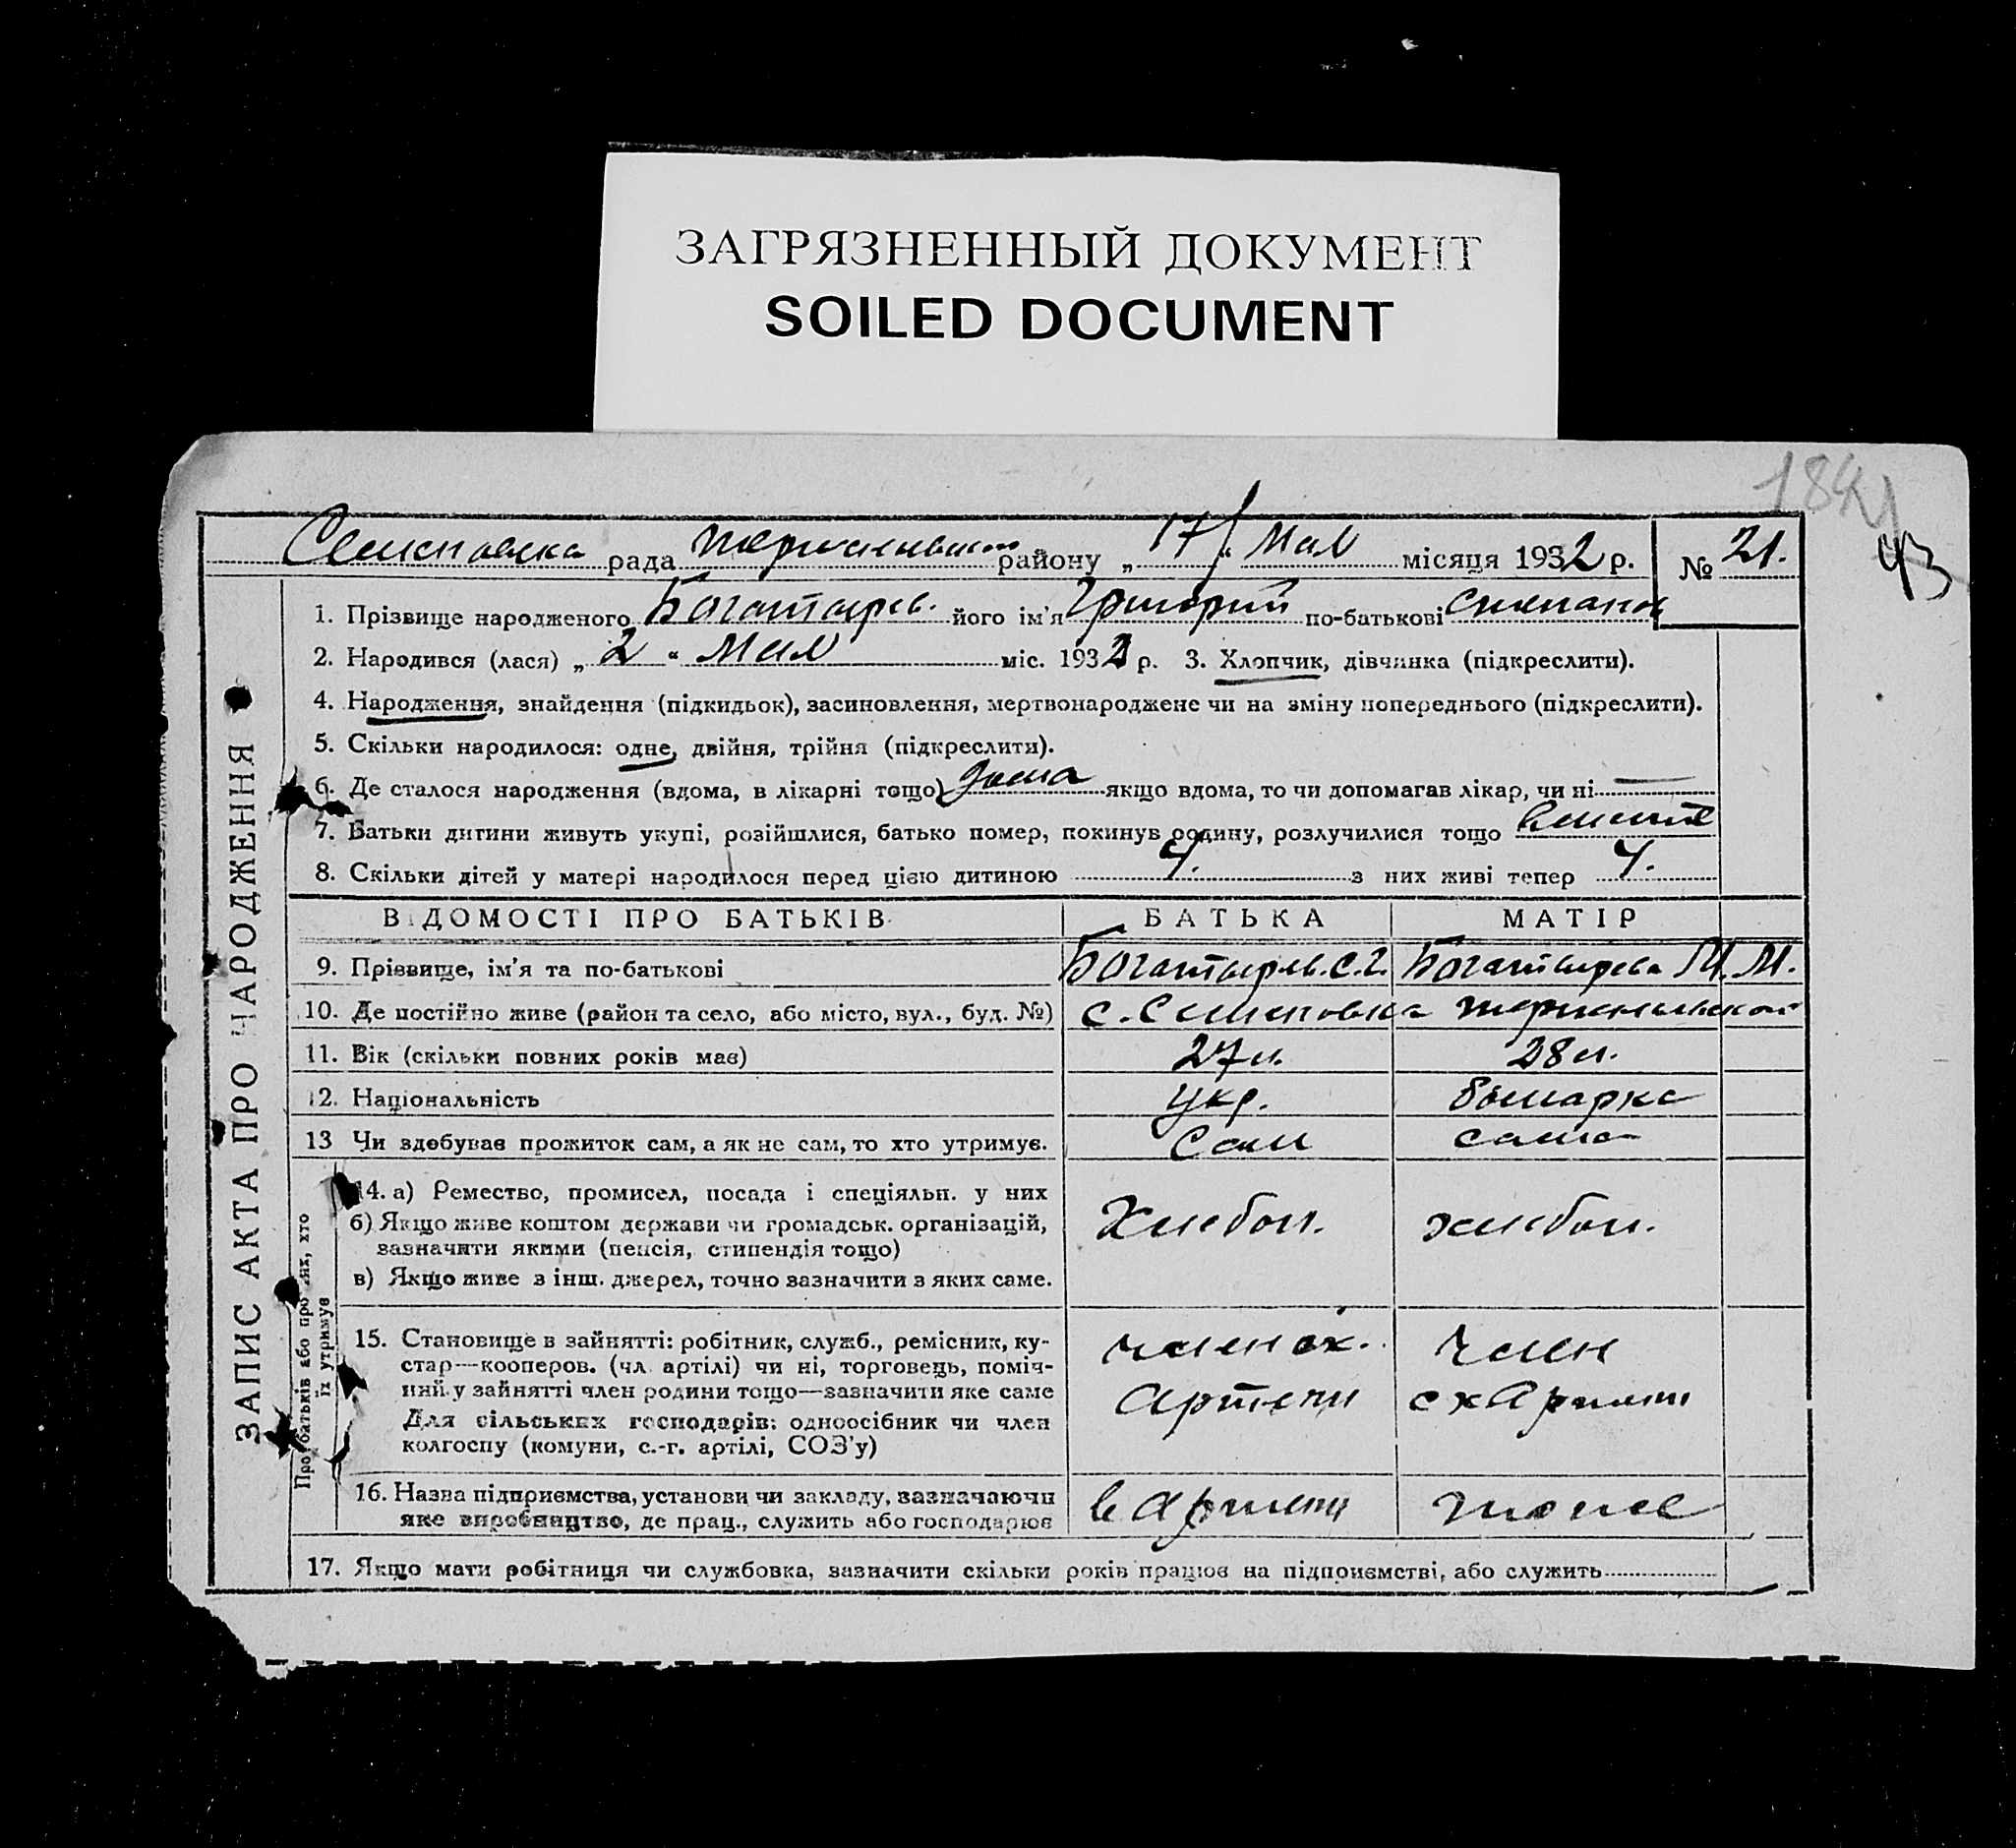 ЗАГРЯЗНЕННЫЙ ДОКУМЕНТ
SOILED DOCUMENT
43
рада району „17“ Мая місяця 1932 р. № 21.
1. Прізвище народженого Богатырев. його ім'я Григорий по-батькові
2. Народився (лася) „2“ Мая міс. 1932 р. 3. Хлопчик, дівчинка (підкреслити).
4. Народження, знайдення (підкидьок), засиновлення, мертвонароджене чи на зміну попереднього (підкреслити).
5. Скільки народилося: одне, двійня, трійня (підкреслити).
6. Де сталося народження (вдома, в лікарні тощо) дома якщо вдома, то чи допомагав лікар, чи ні —
7. Батьки дитини живуть укупі, розійшлися, батько помер, покинув родину, розлучилися тощо вместе
8. Скільки дітей у матері народилося перед цією дитиною 4. з них живі тепер 4.
ВІДОМОСТІ ПРО БАТЬКІВ БАТЬКА МАТІР
9. Прізвище, ім'я та по-батькові Богатырев. С. Г. Богатырева М. М.
10. Де постійно живе (район та село, або місто, вул., буд. №)
11. Вік (скільки повних років має) 27 л. 28 л.
12. Національність Укр. болгарка
13 Чи здобував прожиток сам, а як не сам, то хто утримує. Сам сама
14. а) Ремество, промисел, посада і спеціяльн. у них
б) Якщо живе коштом держави чи громадськ. організацій,
зазначити якими (пенсія, стипендія тощо)
в) Якщо живе з інш. джерел, точно зазначити з яких саме.
Хлебоп. хлебоп.
15. Становище в зайнятті: робітник, служб., ремісник, ку-
стар—кооперов. (чл. артілі) чи ні, торговець, поміч-
ний у зайнятті член родини тощо—зазначити яке саме
Для сільських господарів: одноосібник чи член
колгоспу (комуни, с.-г. артілі, СОЗ'у)
член сх. Член
Артели сх Артели
16. Назва підприємства, установи чи закладу, зазначаючи
яке виробництво, де прац., служить або господарює
в Артели тоже
17. Якщо мати робітниця чи службовка, зазначити скільки років працює на підприємстві, або служить
ЗАПИС АКТА ПРО НАРОДЖЕННЯ
Про батьків або про тих, хто
їх утримує